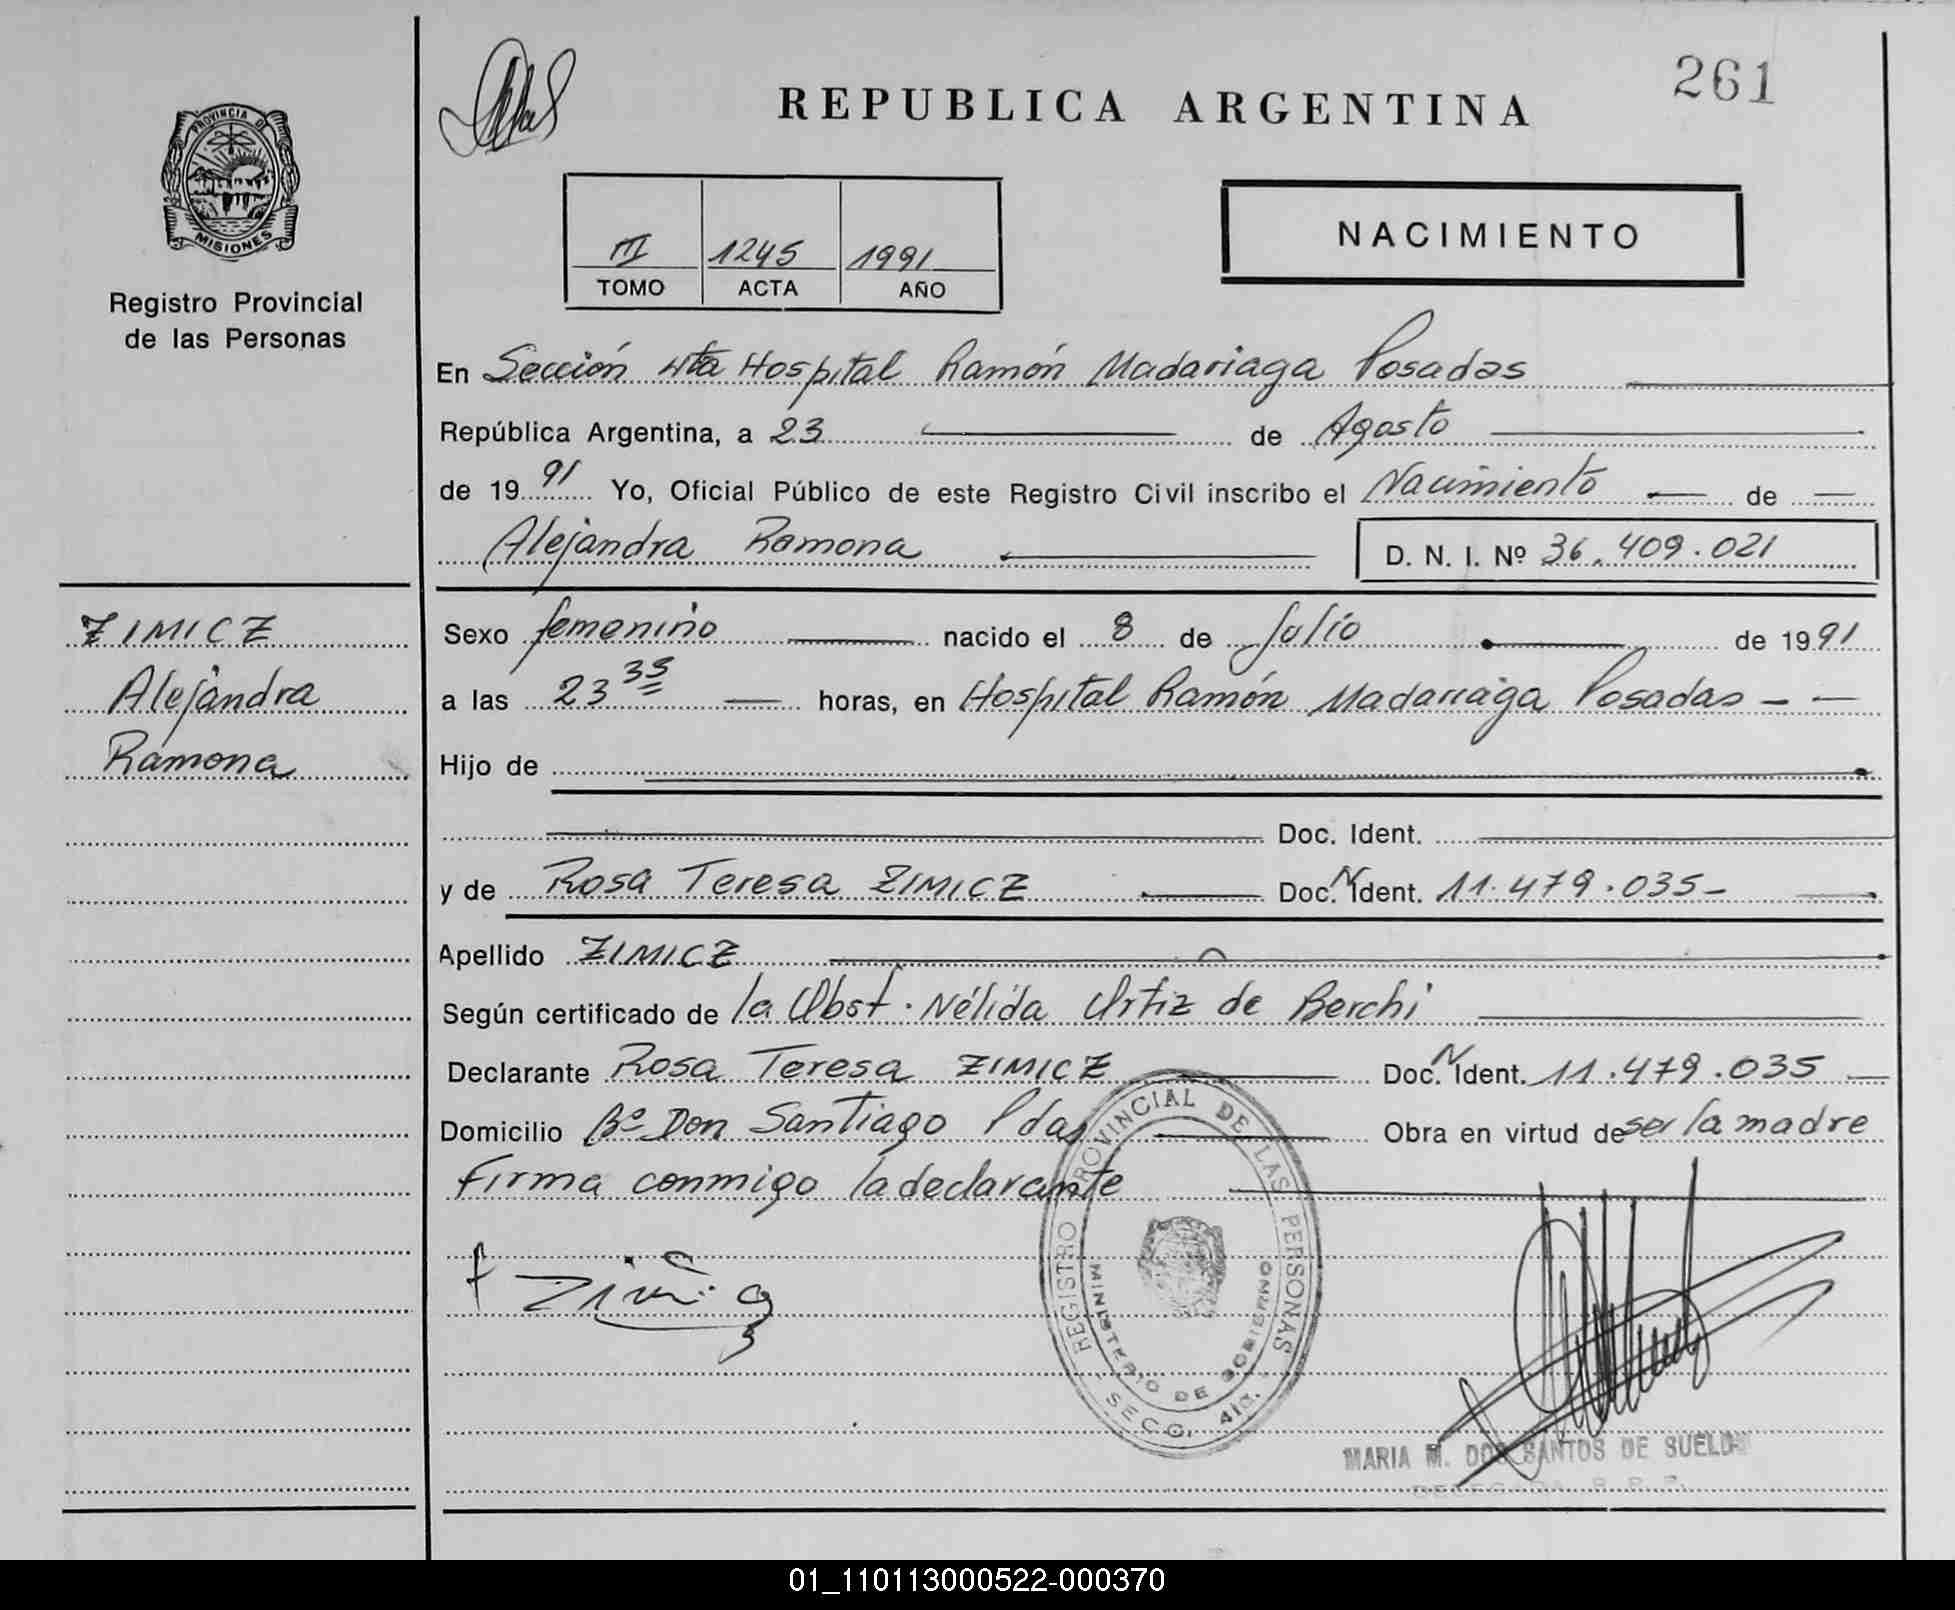 261
REPUBLICA ARGENTINA
PROVINCIA DE
MISIONES
Registro Provincial
de las Personas
III 1245 1991
TOMO ACTA AÑO
NACIMIENTO
En Sección 4ta Hospital Ramón Madariaga Posadas
República Argentina, a 23 de Agosto
de 19 91 Yo, Oficial Público de este Registro Civil inscribo el Nacimiento de
Alejandra Ramona D. N. I. Nº 36.409.021
ZIMICZ
Alejandra
Ramona
Sexo femenino nacido el 8 de Julio de 1991
a las 23 35 horas, en Hospital Ramón Madariaga Posadas
Hijo de
Doc. Ident.
y de Rosa Teresa ZIMICZ Doc. N Ident. 11.479.035
Apellido ZIMICZ
Según certificado de la Obst. Nélida Ortiz de Berchi
Declarante Rosa Teresa ZIMICZ Doc. N Ident. 11.479.035
Domicilio Bº Don Santiago Pdas Obra en virtud de ser la madre
Firma conmigo la declarante
REGISTRO PROVINCIAL DE LAS PERSONAS
MINISTERIO DE GOBIERNO
SECC. 4ta.
MARIA M. DOS SANTOS DE SUELDO
DELEGADA R. P. P.
01_110113000522-000370